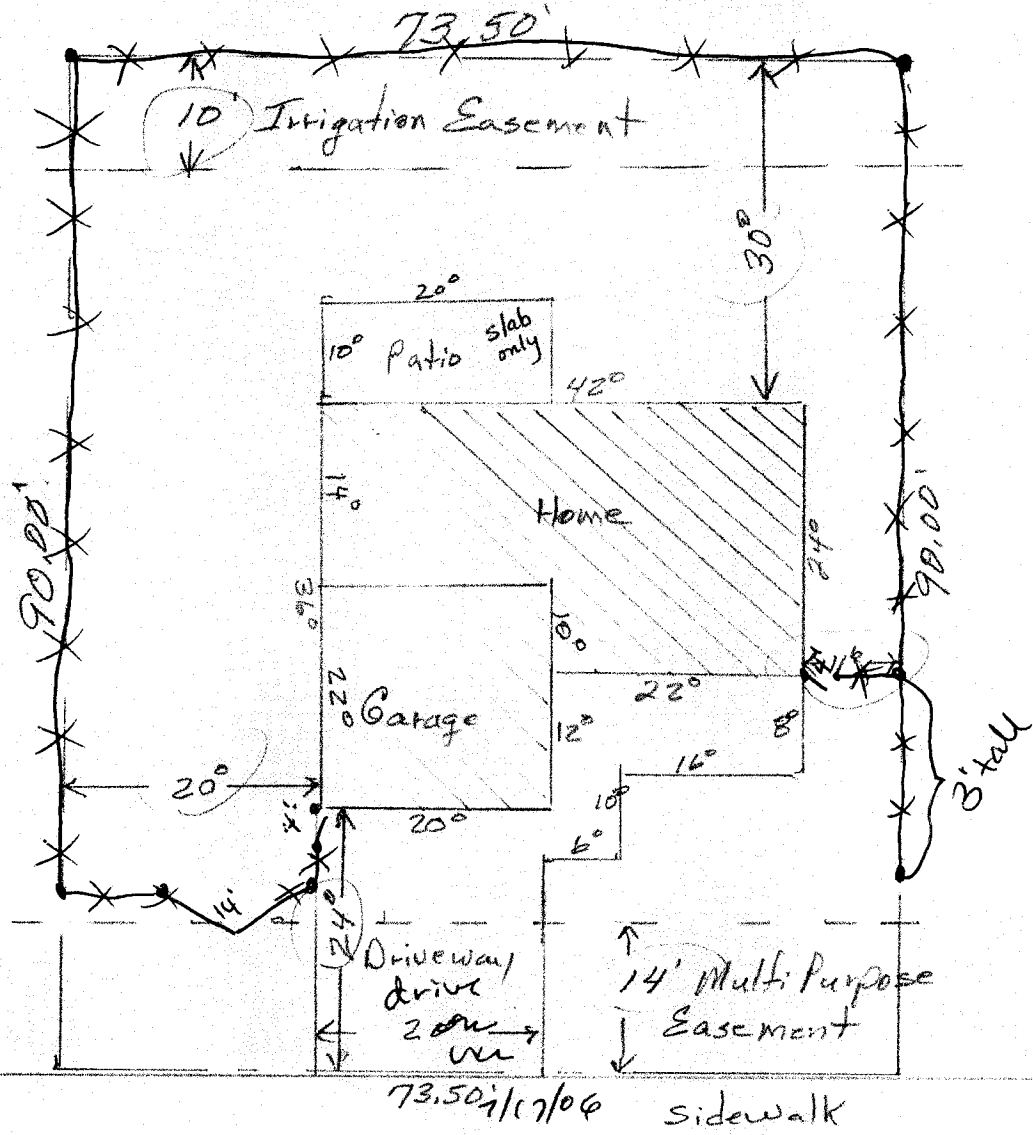 73.50'
10' Irrigation Easement
30⁰
20⁰
10⁰ Patio slab only
42⁰
14⁰
Home
24⁰
90.00'
90.00'
36⁰
10⁰
22⁰
22⁰
Garage
12⁰
8⁰
16⁰
3' tall
20⁰
4'
20⁰
10⁰
6⁰
14'
24⁰
Driveway
drive
14' Multi Purpose
Easement
73.50'
7/17/06
Sidewalk